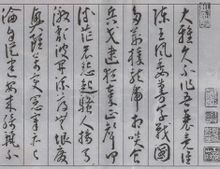 大雅久不作吾衰竟誰
陳王風委蔓草戰國
多荊榛龍虎相啖食
兵戈逮狂秦正聲何
微茫哀怨起騷人揚馬
激頹波開流蕩無垠廢
興雖萬變憲章亦已
淪自從建安來綺麗不